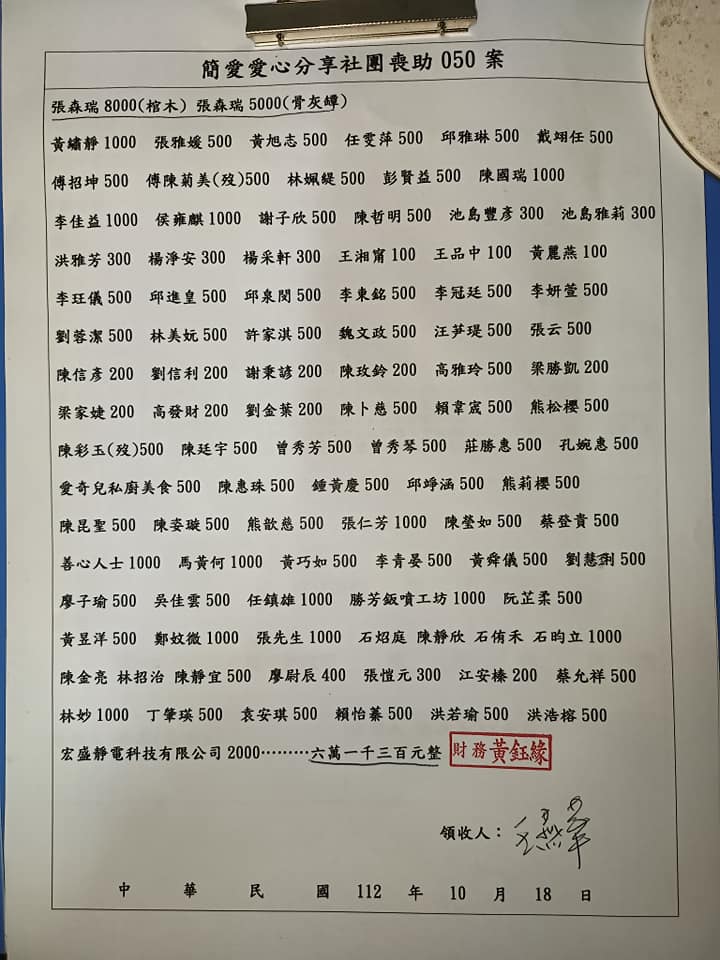 簡愛愛心分享社團喪助 050 案
張森瑞 8000(棺木) 張森瑞 5000(骨灰罈)
黃繡靜 1000 張雅媛 500 黃旭志 500 任雯萍 500 邱雅琳 500 戴翊任 500
傅招坤 500 傅陳菊美(歿)500 林姵緹 500 彭賢益 500 陳國瑞 1000
李佳益 1000 侯雍麒 1000 謝子欣 500 陳哲明 500 池島豐彥 300 池島雅莉 300
洪雅芳 300 楊淨安 300 楊采軒 300 王湘甯 100 王品中 100 黃麗燕 100
李玨儀 500 邱進皇 500 邱泉閔 500 李東銘 500 李冠廷 500 李妍萱 500
劉蓉潔 500 林美妧 500 許家淇 500 魏文政 500 汪笋瑅 500 張云 500
陳信彥 200 劉信利 200 謝秉諺 200 陳玫鈴 200 高雅玲 500 梁勝凱 200
梁家婕 200 高發財 200 劉金葉 200 陳卜慈 500 賴韋宬 500 熊松櫻 500
陳彩玉(歿)500 陳廷宇 500 曾秀芳 500 曾秀琴 500 莊勝惠 500 孔婉惠 500
愛奇兒私廚美食 500 陳惠珠 500 鍾黃慶 500 邱竫涵 500 熊莉櫻 500
陳昆聖 500 陳姿璇 500 熊歆慈 500 張仁芳 1000 陳瑩如 500 蔡登貴 500
善心人士 1000 馬黃何 1000 黃巧如 500 李青晏 500 黃舜儀 500 劉慧琍 500
廖子瑜 500 吳佳雲 500 任鎮雄 1000 勝芳鈑噴工坊 1000 阮芷柔 500
黃昱洋 500 鄭妏微 1000 張先生 1000 石炤庭 陳靜欣 石侑禾 石昀立 1000
陳金亮 林招治 陳靜宜 500 廖尉辰 400 張愷元 300 江安榛 200 蔡允祥 500
林妙 1000 丁肇瑛 500 袁安琪 500 賴怡蓁 500 洪若瑜 500 洪浩榕 500
宏盛靜電科技有限公司 2000………六萬一千三百元整 財務 黃鈺緣
領收人：
中 華 民 國 112 年 10 月 18 日